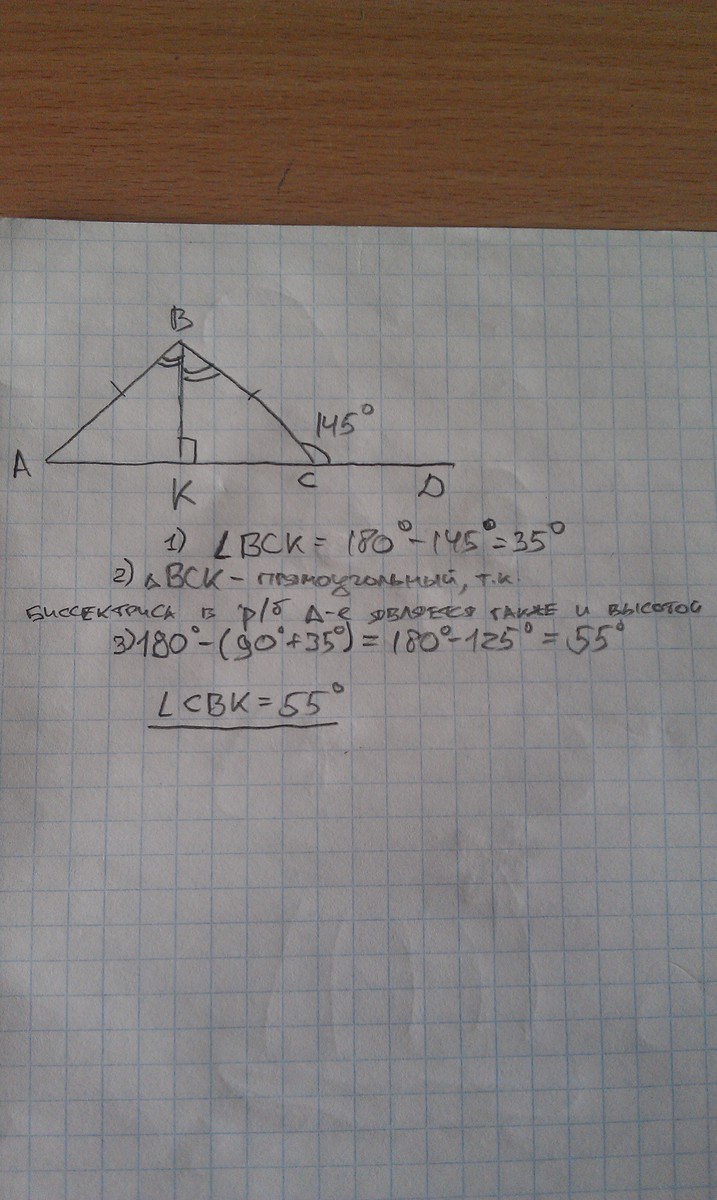 B
145°
A
K
C
D
1) ∠BCK = 180° - 145° = 35°
2) △BCK - прямоугольный, т.к.
биссектриса в р/б Δ-е является также и высотой
3) 180° - (90° + 35°) = 180° - 125° = 55°
∠CBK = 55°